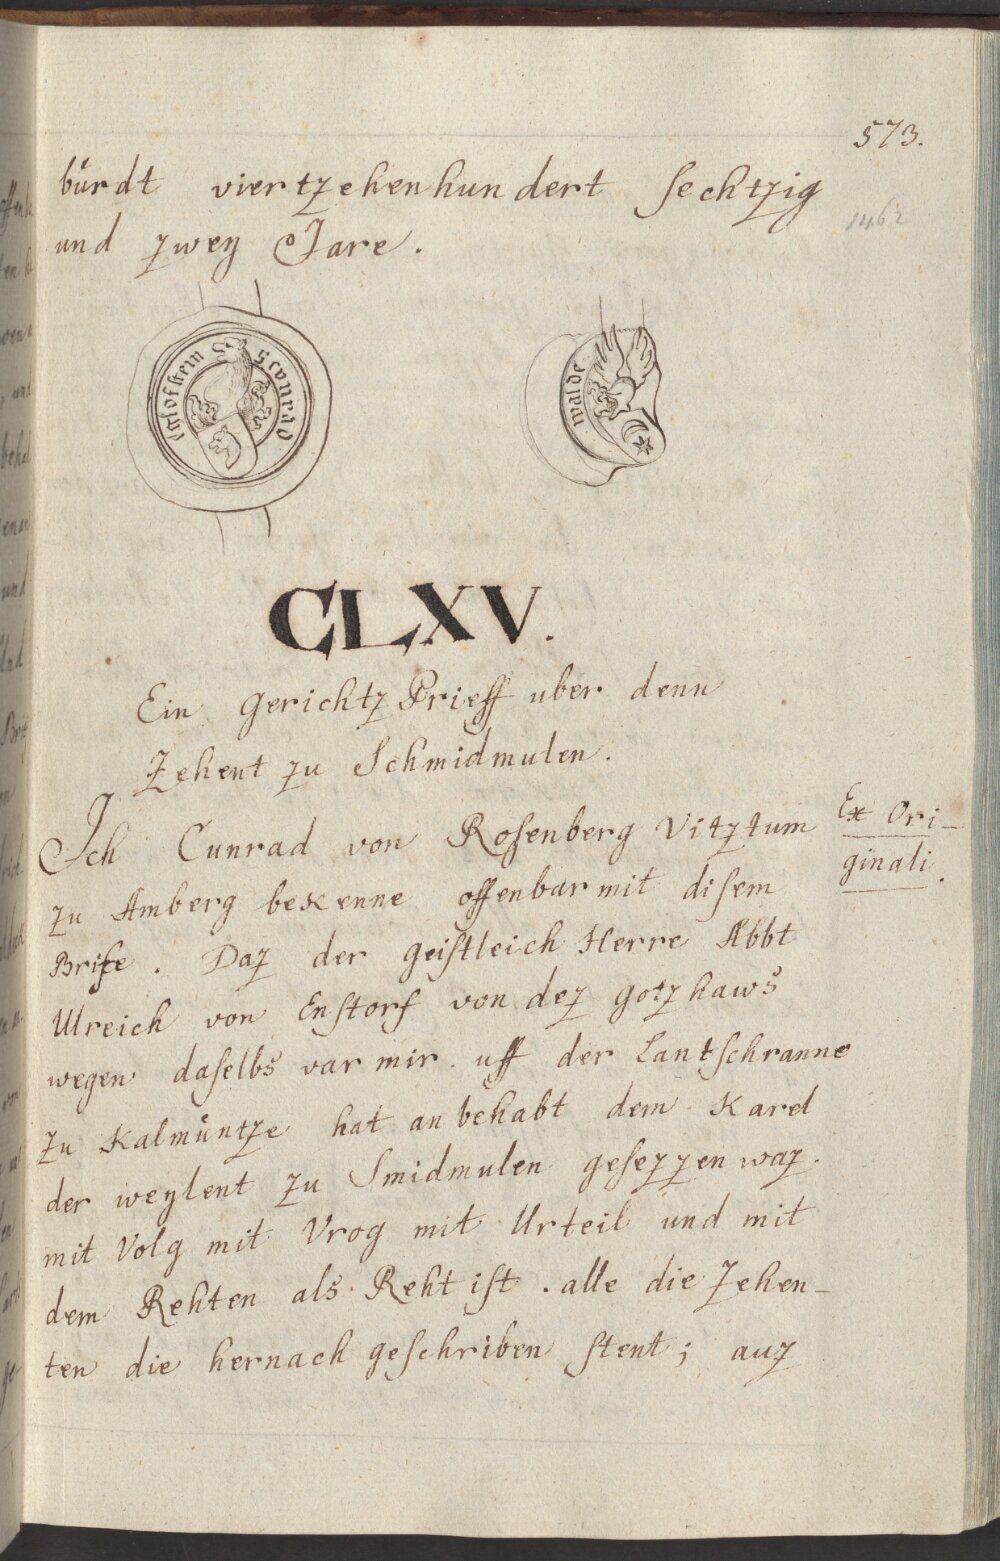 573.
bůrdt viertzehenhundert sechtzig
1462
und zwey Jare.
s cunrad eglofstein
walde
CLXV.
Ein gerichtz Prieff uber denn
Zehent zu Schmidmulen.
Ich Cunrad von Rosenberg Vitztum
Ex Ori-
ginali.
zu Amberg bekenne offenbar mit disem
Brife. Daz der geistleich Herre Abbt
Ulreich von Enstorf von dez gotzhaws
wegen daselbs var mir. uff der Lantschranne
zu Kalmůntze hat anbehabt dem Karel
der weylent zu Smidmulen gesezzen waz.
mit Volg mit Vrog mit Urteil und mit
dem Rehten als Reht ist. alle die Zehen-
ten die hernach geschriben stent; auz